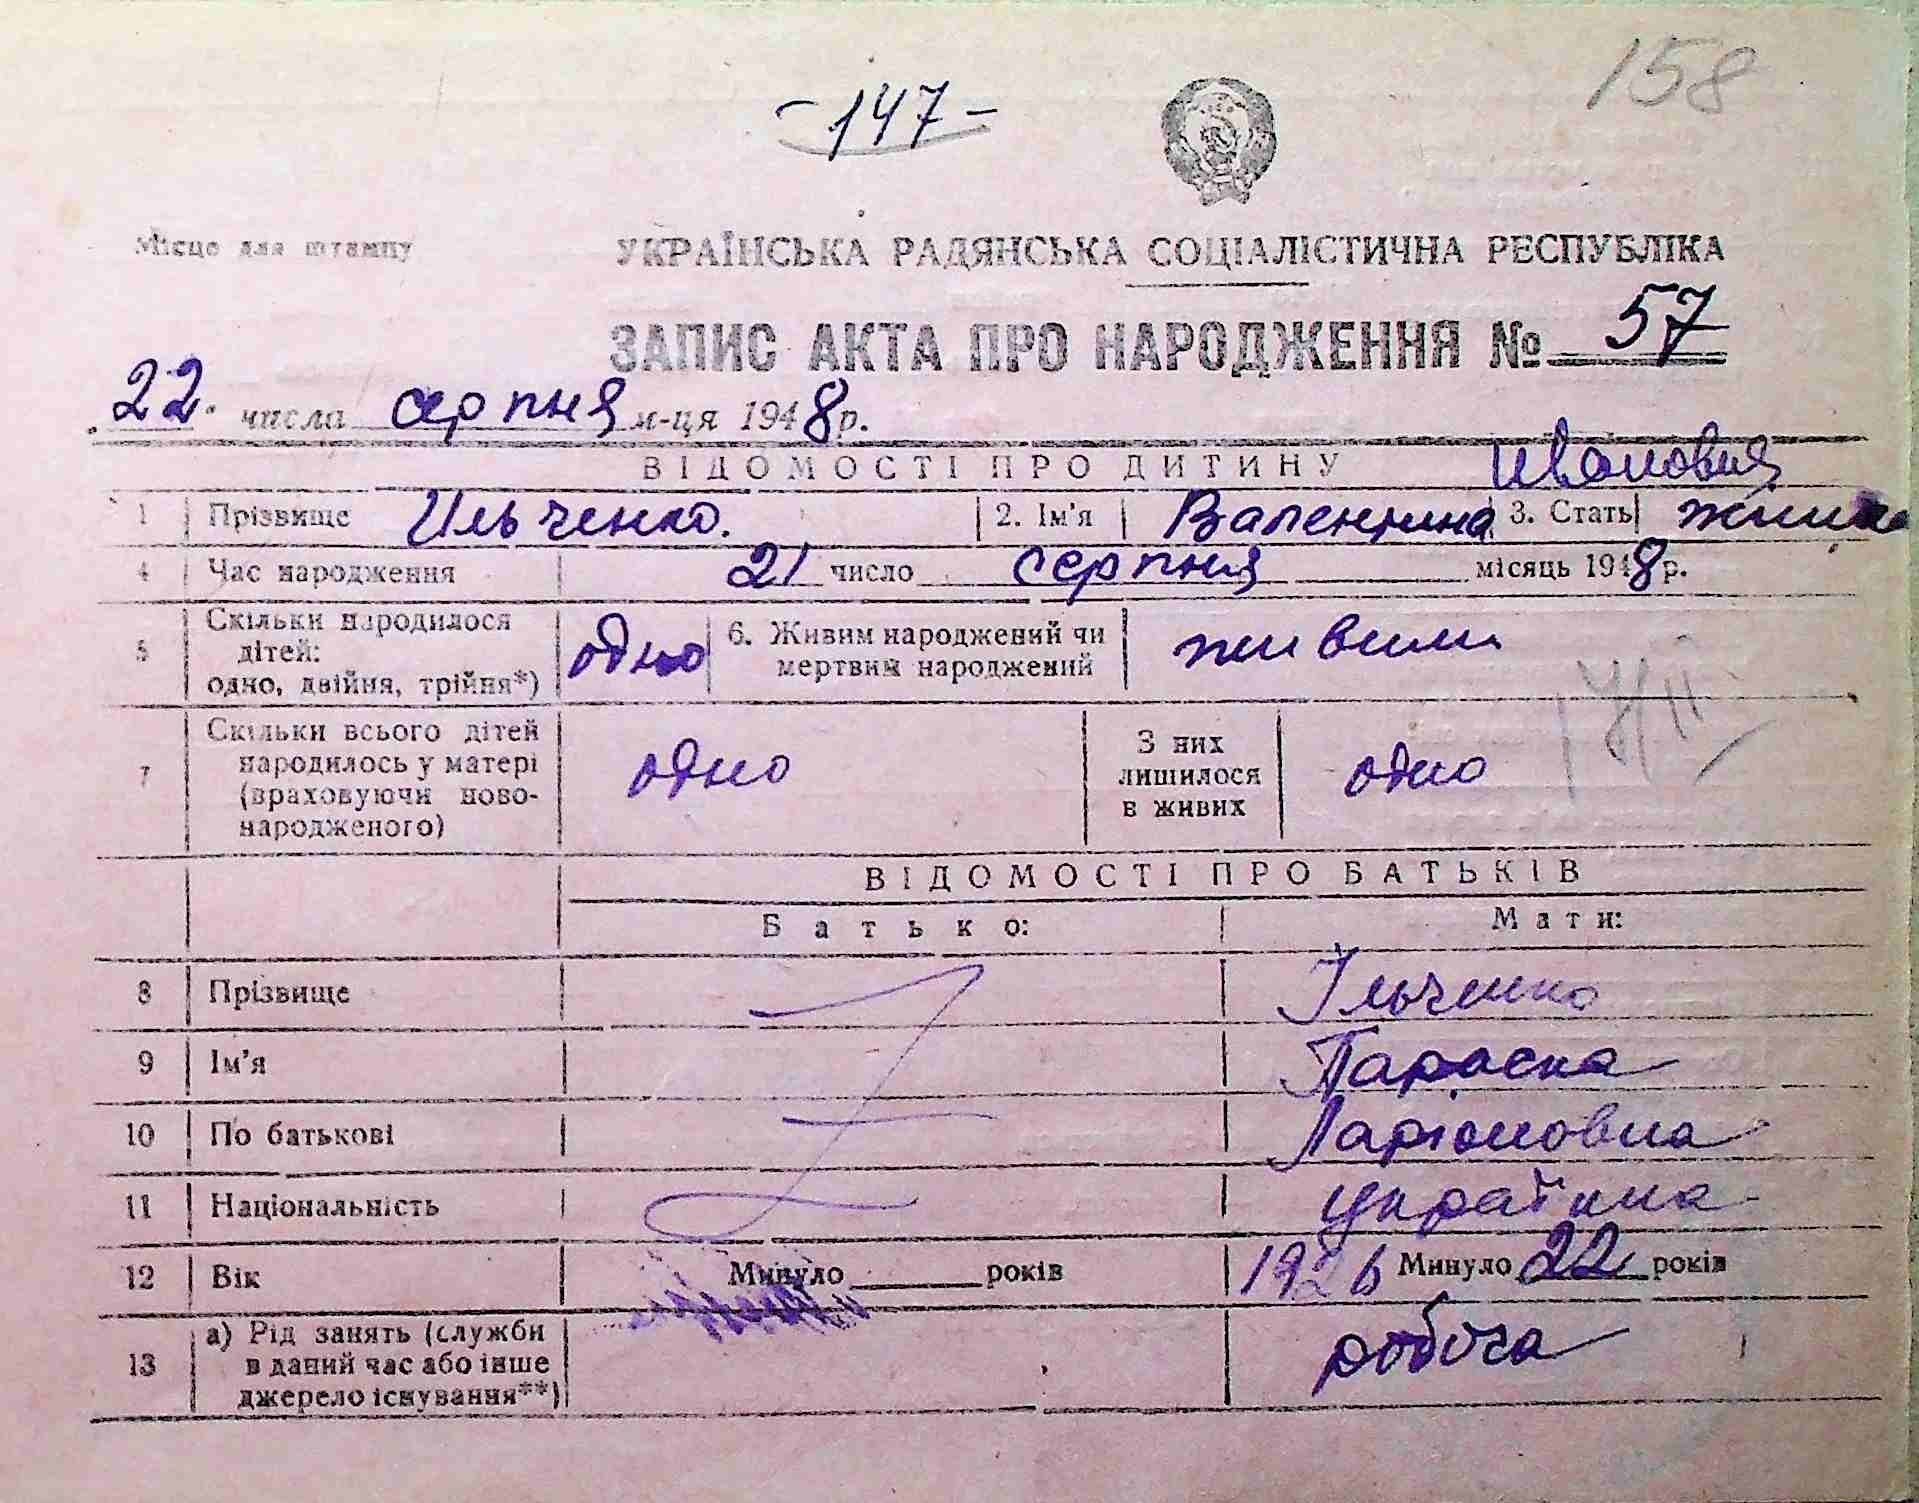 158
- 147 -
Місце для штампу
УКРАЇНСЬКА РАДЯНСЬКА СОЦІАЛІСТИЧНА РЕСПУБЛІКА
ЗАПИС АКТА ПРО НАРОДЖЕННЯ № 57
22 числа серпня м-ця 1948 р.
ВІДОМОСТІ ПРО ДИТИНУ
1 Прізвище Ильченко. 2. Ім'я Валентина 3. Стать
4 Час народження 21 число серпня місяць 1948 р.
5 Скільки народилося дітей: одно, двійня, трійня*) одно 6. Живим народжений чи мертвим народжений живим
7 Скільки всього дітей народилось у матері (враховуючи ново-народженого) одно З них лишилося в живих одно
ВІДОМОСТІ ПРО БАТЬКІВ
Батько: Мати:
8 Прізвище Ільченко
9 Ім'я Параска
10 По батькові Ларіоновна
11 Національність українка
12 Вік Минуло років 1926 Минуло 22 років
13 а) Рід занять (служби в даний час або інше джерело існування**) робоча